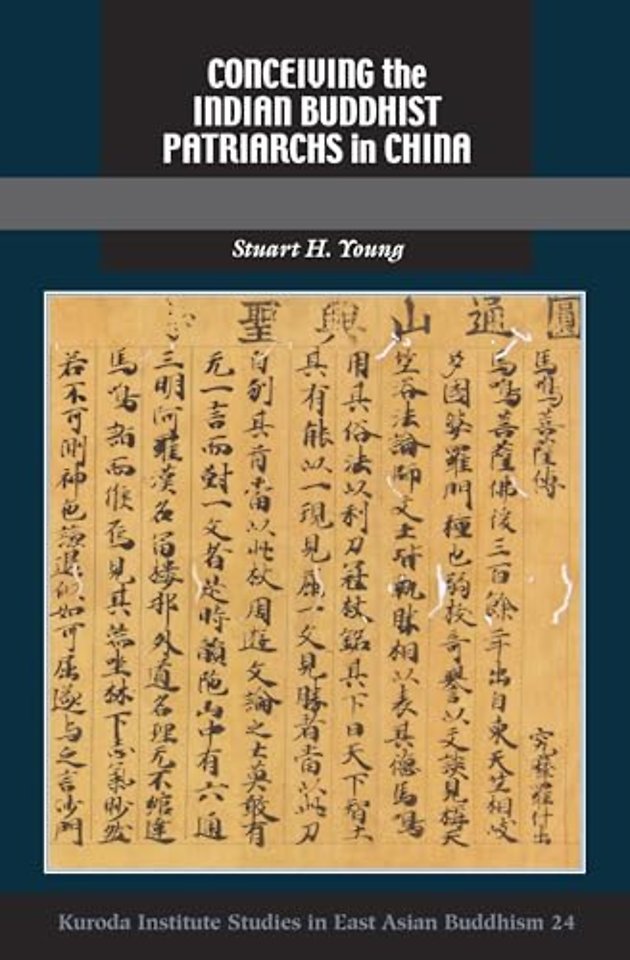 CONCEIVING the
INDIAN BUDDHIST
PATRIARCHS in CHINA
Stuart H. Young
圓通山興聖
馬鳴菩薩傳 羅什出
馬鳴菩薩佛後三百餘年出自東天笁桐
多國婆羅門種也弱狡奇譽以文談見稱天
笁俗法論師文士皆執勝相以表其德馬鳴
用其俗法以利刀冠杖銘其下曰天下智士
其有能以一理見屈一文見勝者當以此刀
自刎其首常以此杖周遊文論之士莫敢有
无一言而對一文者是時韻陀山中有六通
三明阿羅漢名富樓那外道名理无不綜達
馬鳴詣而候焉見其端坐林下志氣眇然
若不可測神色謙退似如可屈遂与之言沙門
Kuroda Institute Studies in East Asian Buddhism 24